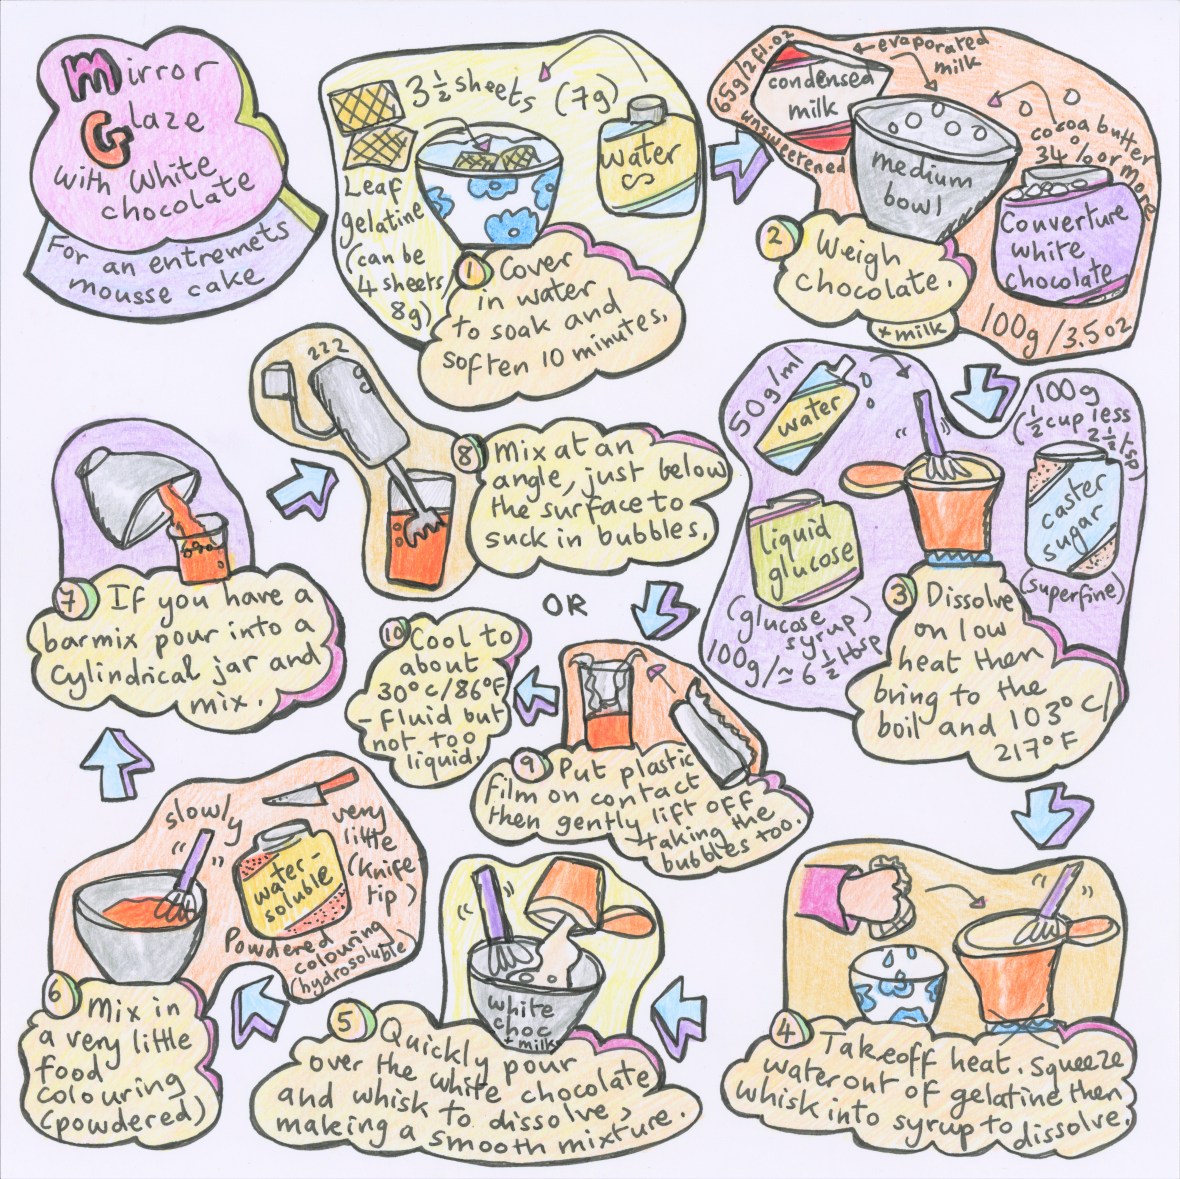 Mirror
Glaze
with White
chocolate
For an entremets
mousse cake
3 1/2 sheets (7g)
water
Leaf
gelatine
(can be
4 sheets/
8g)
1 Cover
in water
to soak and
soften 10 minutes.
65g/2fl.oz
evaporated
milk
condensed
milk
unsweetened
medium
bowl
cocoa butter
34% or more
Couverture
white
chocolate
100g/3.5oz
2 Weigh
chocolate.
+ milk
50g/ml
water
100g
(1/2 cup less
2 1/2 tsp)
caster
sugar
(superfine)
liquid
glucose
(glucose
syrup)
100g/≃ 6 1/2 tbsp
3 Dissolve
on low
heat then
bring to the
boil and 103°C/
217°F
4 Take off heat. Squeeze
water out of gelatine then
whisk into syrup to dissolve.
white
choc
+ milk
5 Quickly pour
over the white chocolate
and whisk to dissolve,
making a smooth mixture.
slowly
very
little
(knife
tip)
water-
soluble
Powdered
colouring
(hydrosoluble)
6 Mix in
a very little
food
colouring
(powdered)
7 If you have a
barmix pour into a
cylindrical jar and
mix.
zzz
8 Mix at an
angle, just below
the surface to
suck in bubbles.
OR
9 Put plastic
film on contact
then gently lift off
taking the
bubbles too.
10 Cool to
about
30°C/86°F
- fluid but
not too
liquid.